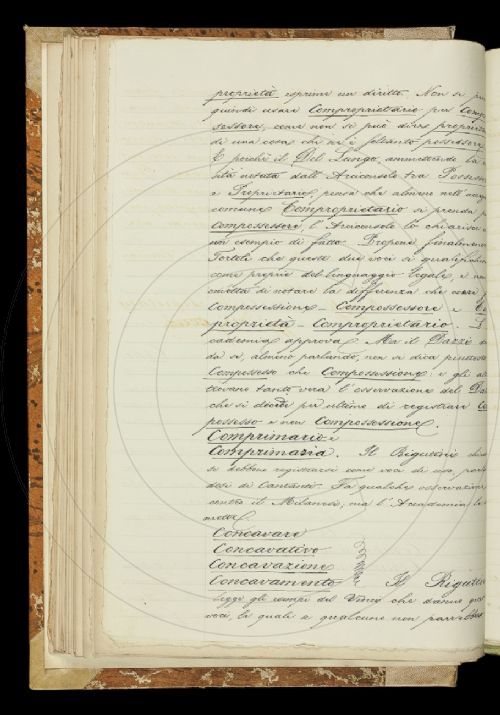 proprietà esprime un diritto. Non si può
quindi usare Comproprietario per Compos
sessore, come non si può dirsi proprietario
di una cosa chi ne è soltanto possessore
E perché il Del Lungo, ammettendo la
sità notata dall'Arciconsolo tra Possessore
e Proprietario, pensa che almeno nell'uso
comune Comproprietario si prenda per
Compossessore, l'Arciconsolo lo chiarisce
un esempio di fatto. Propone finalmente
Tortoli che queste due voci si qualifichino
come proprie del linguaggio legale, e
di notare la differenza che corre
Compossessione - Compossessore e Com
proprietà - Comproprietario. L'Ac
cademia approva. Ma il Dazzi
da se, almeno parlando, non si dica piuttosto
Compossesso che Compossessione: e gli
trovano tanto vera l'osservazione del Dazzi
che si decide per ultimo di registrare Com
possesso e non Compossessione.
Comprimario e
Comprimaria. Il Rigutini
se debbano registrarsi come voci di uso,
dosi di Cantanti. Fa qualche osservazione
contro il Milanesi, ma l'Accademia
mette.
Concavare
Concavativo
Concavazione
Concavamento Il Rigutini
legge gli esempi del Vinci che danno queste
voci, le quali a qualcuno non parrebbero